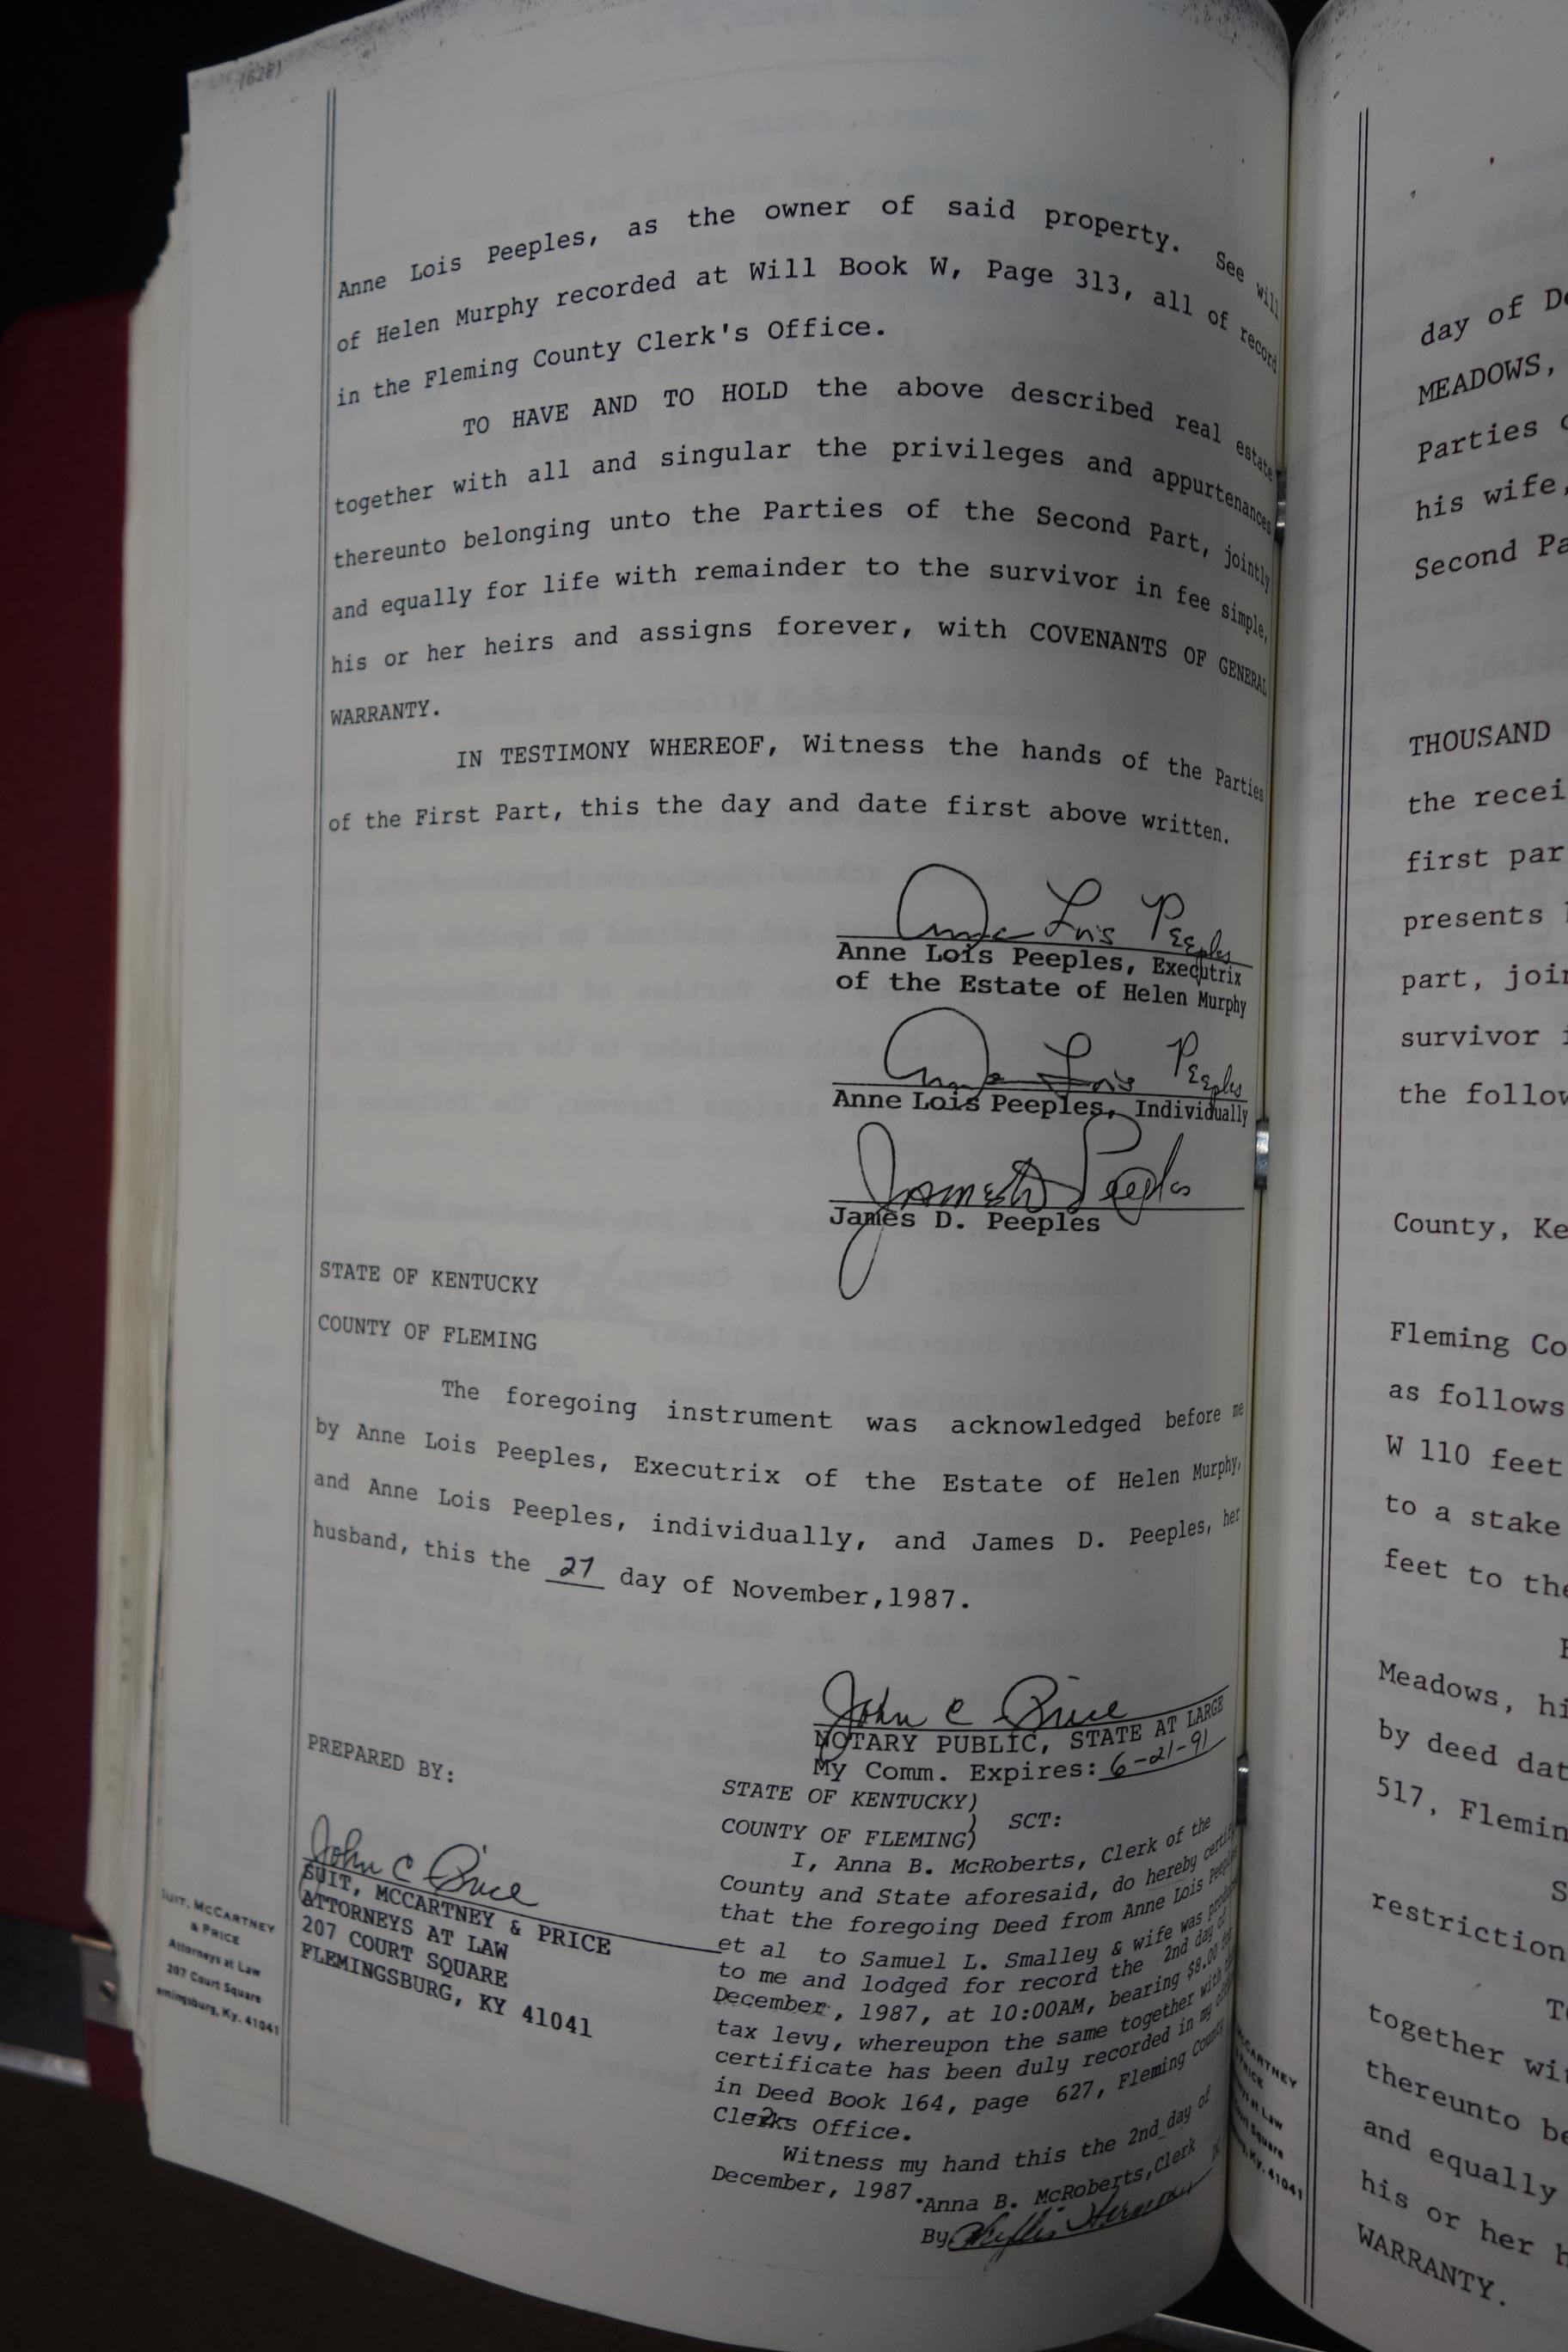 (628)
Anne Lois Peeples, as the owner of said property. See will
of Helen Murphy recorded at Will Book W, Page 313, all of record
in the Fleming County Clerk's Office.
TO HAVE AND TO HOLD the above described real estate
together with all and singular the privileges and appurtenances
thereunto belonging unto the Parties of the Second Part, jointly
and equally for life with remainder to the survivor in fee simple,
his or her heirs and assigns forever, with COVENANTS OF GENERAL
WARRANTY.
IN TESTIMONY WHEREOF, Witness the hands of the Parties
of the First Part, this the day and date first above written.
Anne Lois Peeples
Anne Lois Peeples, Executrix
of the Estate of Helen Murphy
Anne Lois Peeples
Anne Lois Peeples, Individually
James D Peeples
James D. Peeples
STATE OF KENTUCKY
COUNTY OF FLEMING
The foregoing instrument was acknowledged before me
by Anne Lois Peeples, Executrix of the Estate of Helen Murphy,
and Anne Lois Peeples, individually, and James D. Peeples, her
husband, this the 27 day of November,1987.
John C Price
NOTARY PUBLIC, STATE AT LARGE
My Comm. Expires: 6-21-91
PREPARED BY:
John C Price
SUIT, MCCARTNEY & PRICE
ATTORNEYS AT LAW
207 COURT SQUARE
FLEMINGSBURG, KY 41041
SUIT, MCCARTNEY
& PRICE
Attorneys at Law
207 Court Square
emingsburg, Ky. 41041
STATE OF KENTUCKY)
) SCT:
COUNTY OF FLEMING)
I, Anna B. McRoberts, Clerk of the
County and State aforesaid, do hereby certify
that the foregoing Deed from Anne Lois Peeples
et al to Samuel L. Smalley & wife was produced
to me and lodged for record the 2nd day of
December, 1987, at 10:00AM, bearing $8.00 for
tax levy, whereupon the same together with this
certificate has been duly recorded in my office
in Deed Book 164, page 627, Fleming County
Clerks Office.
-2-
Witness my hand this the 2nd day of
December, 1987.
Anna B. McRoberts,Clerk
By
day of De
MEADOWS,
Parties o
his wife,
Second Pa
THOUSAND
the recei
first par
presents
part, join
survivor i
the follow
County, Ke
Fleming Co
as follows
W 110 feet
to a stake
feet to the
Meadows, hi
by deed dat
517, Flemin
S
restriction
To
together wit
thereunto be
and equally
his or her h
WARRANTY.
MCCARTNEY
PRICE
at Law
Square
Ky. 41041